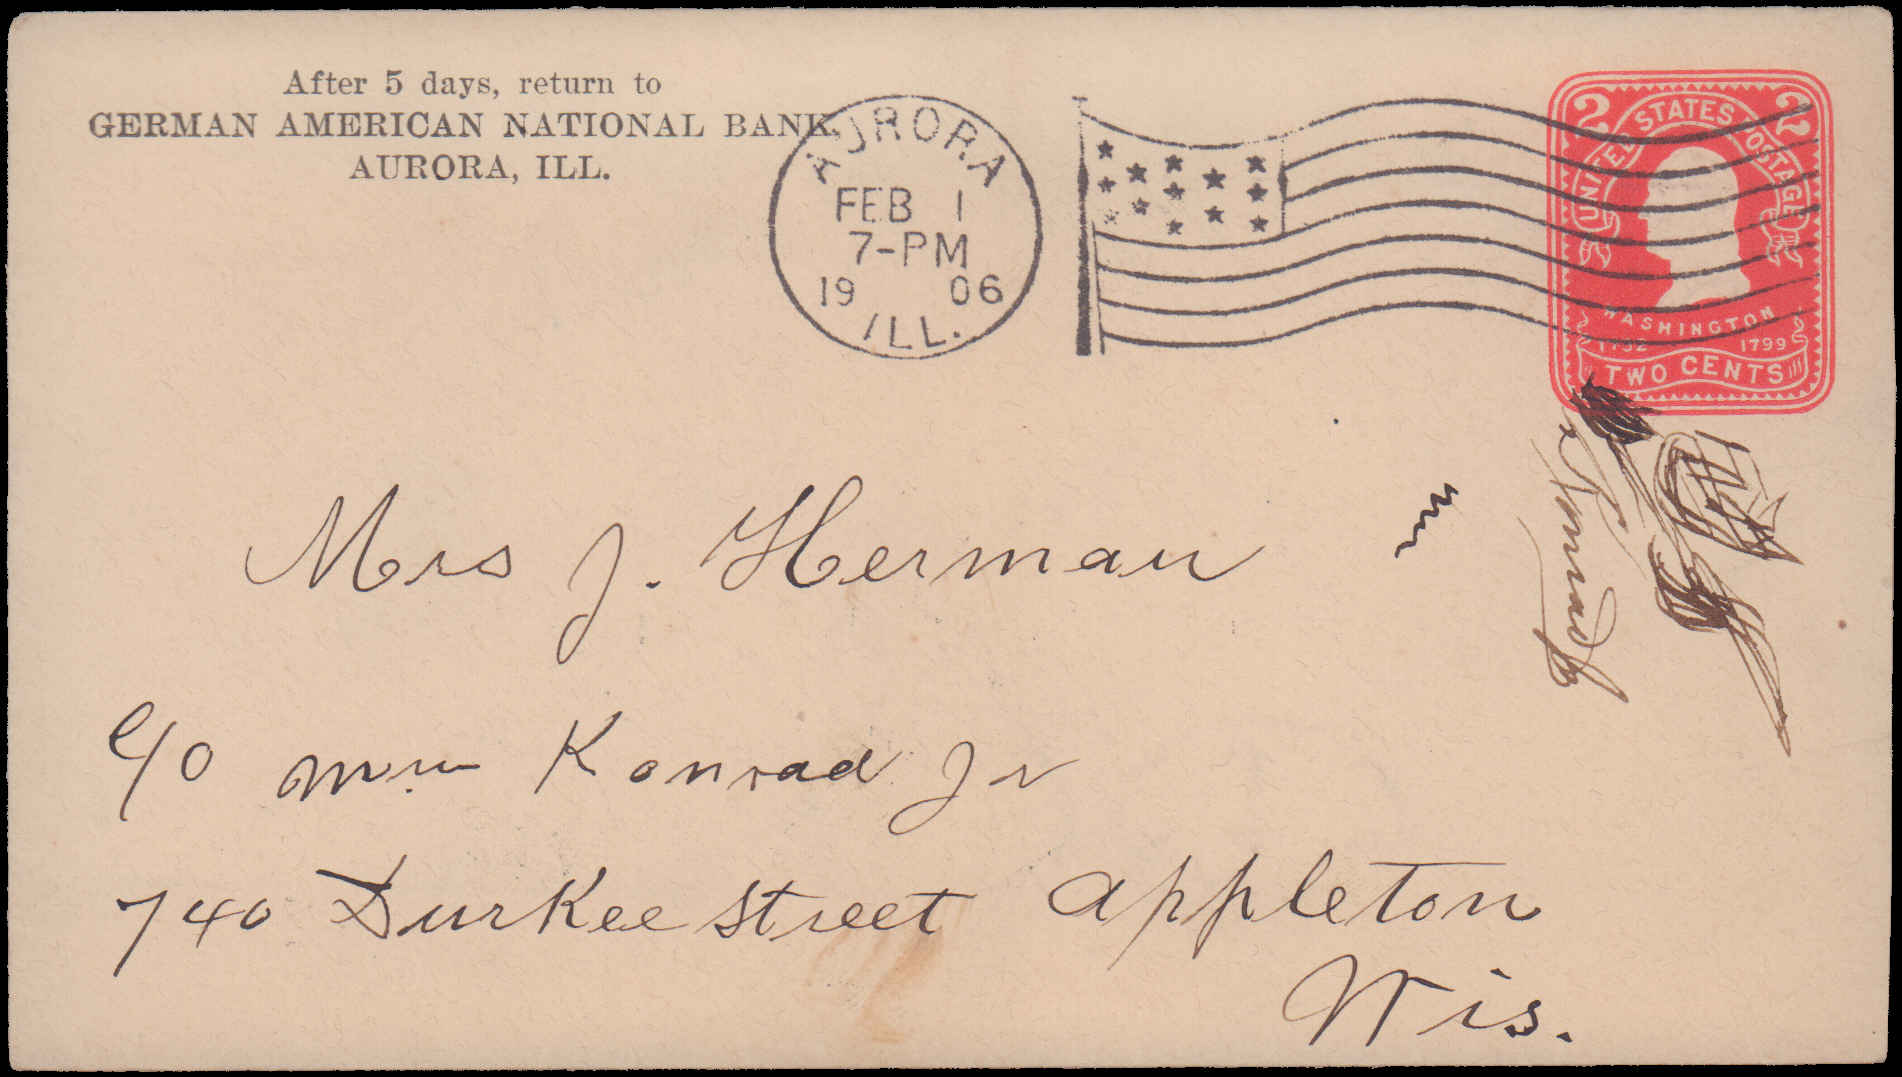 After 5 days, return to
GERMAN AMERICAN NATIONAL BANK,
AURORA, ILL.
AURORA
FEB 1
7-PM
19 06
ILL.
2 UNITED STATES POSTAGE 2
WASHINGTON
1732 1799
TWO CENTS
Mrs J. Herman
c/o Wm Konrad Jr
740 Durkee Street Appleton
Wis.